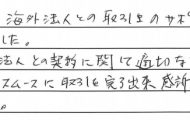 海外法人との取引のサポ
した。
法人との契約に関して適切な
スムースに取引を完了出来感謝
。